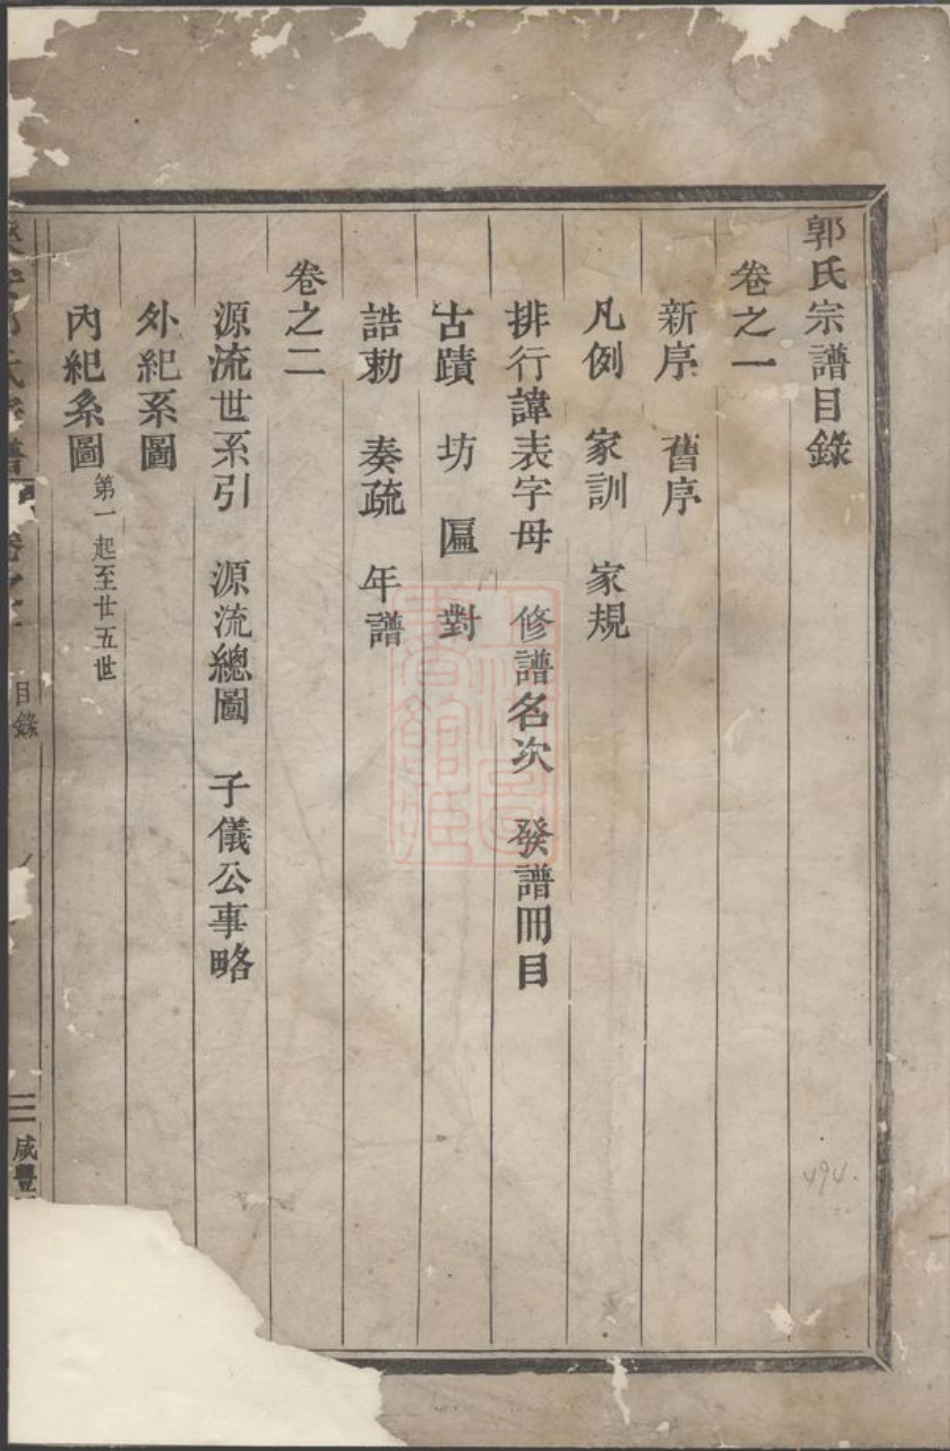 郭氏宗譜目錄
卷之一
新序 舊序
凡例 家訓 家規
排行諱表字母 修譜名次 發譜冊目
古蹟 坊 匾 對
誥勅 奏疏 年譜
卷之二
源流世系引 源流總圖 子儀公事略
外紀系圖
內紀系圖 第一起至廿五世
氏 譜 卷之 目錄 三 咸豐
494.